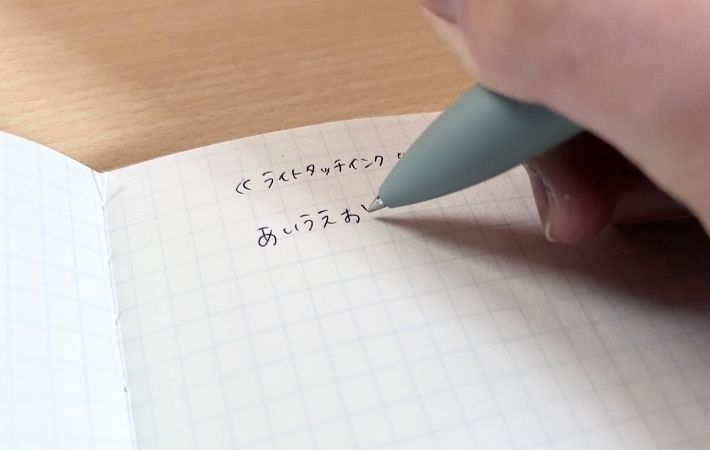 《ライトタッチインク
あいうえお